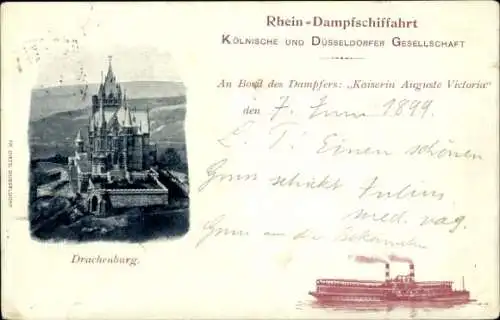 Rhein-Dampfschiffahrt
Kölnische und Düsseldorfer Gesellschaft
An Bord des Dampfers: „Kaiserin Auguste Victoria“
den 7. Juni 1899.
L. T. Einen schönen
Gruss schickt Julius
med. vag.
Gruss an die Bekannten
Drachenburg.